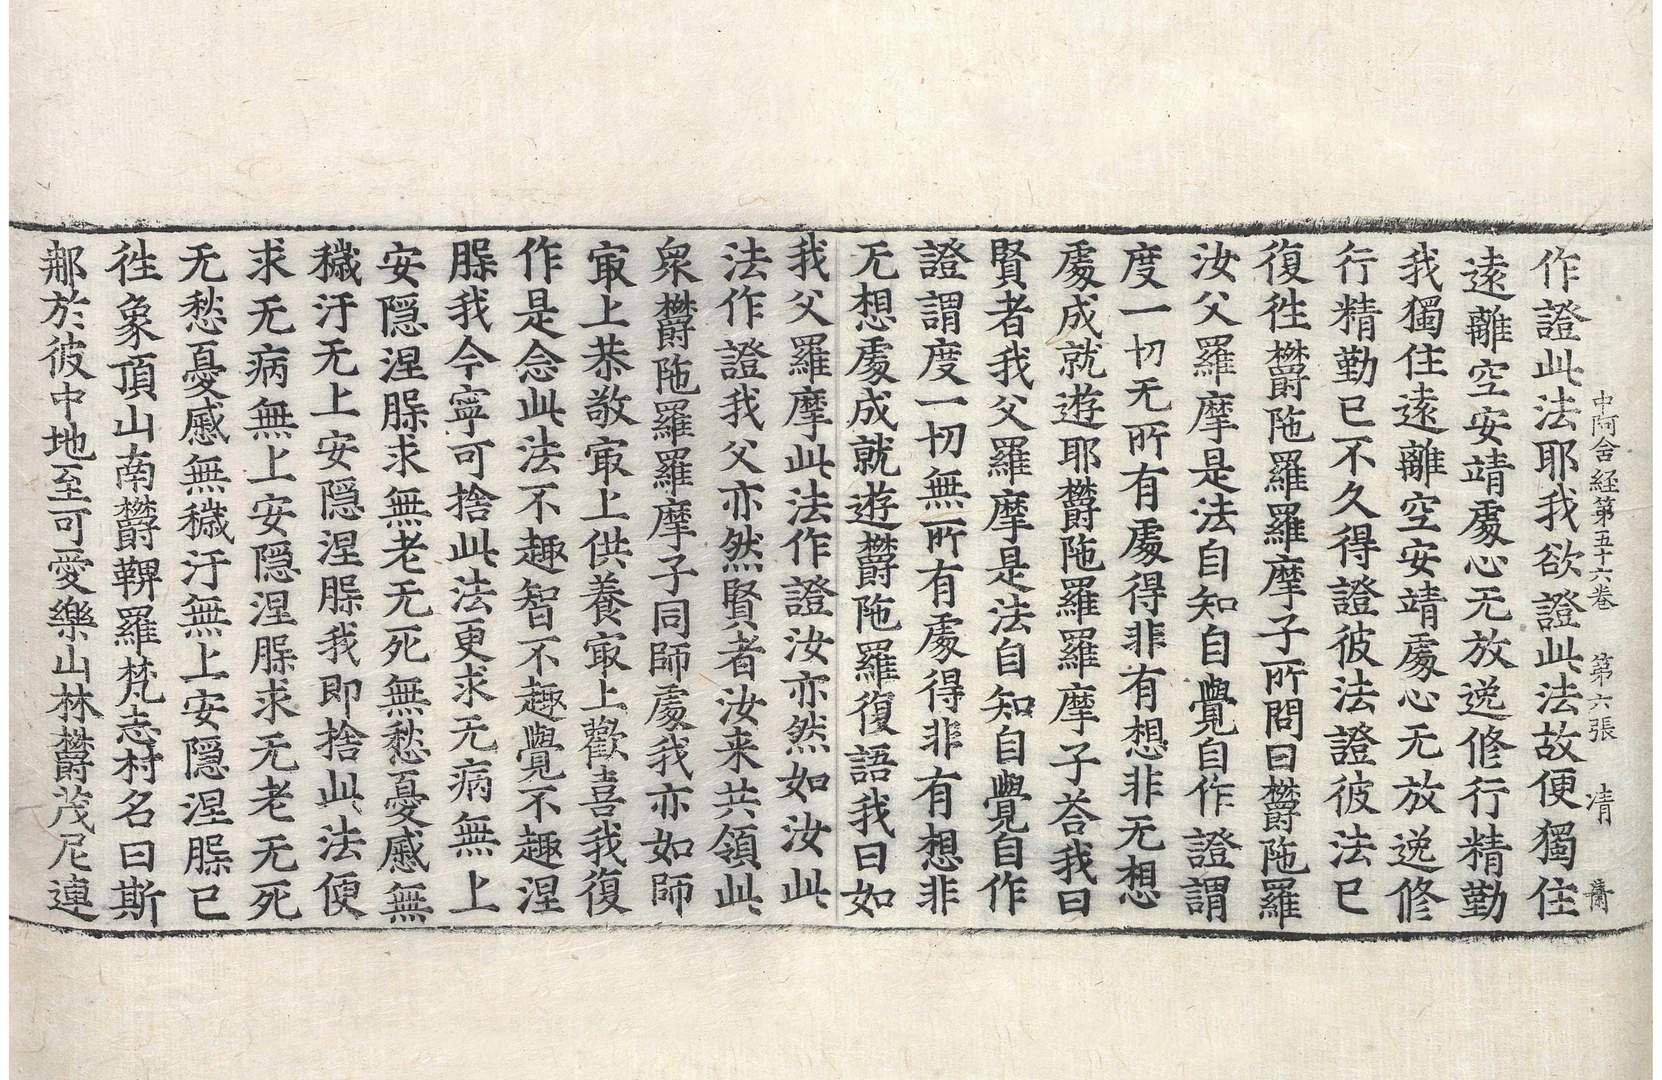 中阿含経第五十六巻　第六張　清
作證此法耶我欲證此法故便獨住
遠離空安靖處心无放逸修行精勤
我獨住遠離空安靖處心无放逸修
行精勤已不久得證彼法證彼法已
復徃欝陁羅羅摩子所問曰欝陁羅
汝父羅摩是法自知自覺自作證謂
度一切无所有處得非有想非无想
處成就遊耶欝陁羅羅摩子荅我曰
賢者我父羅摩是法自知自覺自作
證謂度一切無所有處得非有想非
无想處成就遊欝陁羅復語我曰如
我父羅摩此法作證汝亦然如汝此
法作證我父亦然賢者汝来共領此
衆欝陁羅羅摩子同師處我亦如師
冣上恭敬冣上供養冣上歡喜我復
作是念此法不趣智不趣覺不趣涅
槃我今寧可捨此法更求无病無上
安隱涅槃求無老无死無愁憂慼無
穢汙无上安隱涅槃我即捨此法便
求无病無上安隱涅槃求无老无死
无愁憂慼無穢汙無上安隱涅槃已
徃象頂山南欝鞞羅梵志村名曰斯
那於彼中地至可愛樂山林欝茂尼連